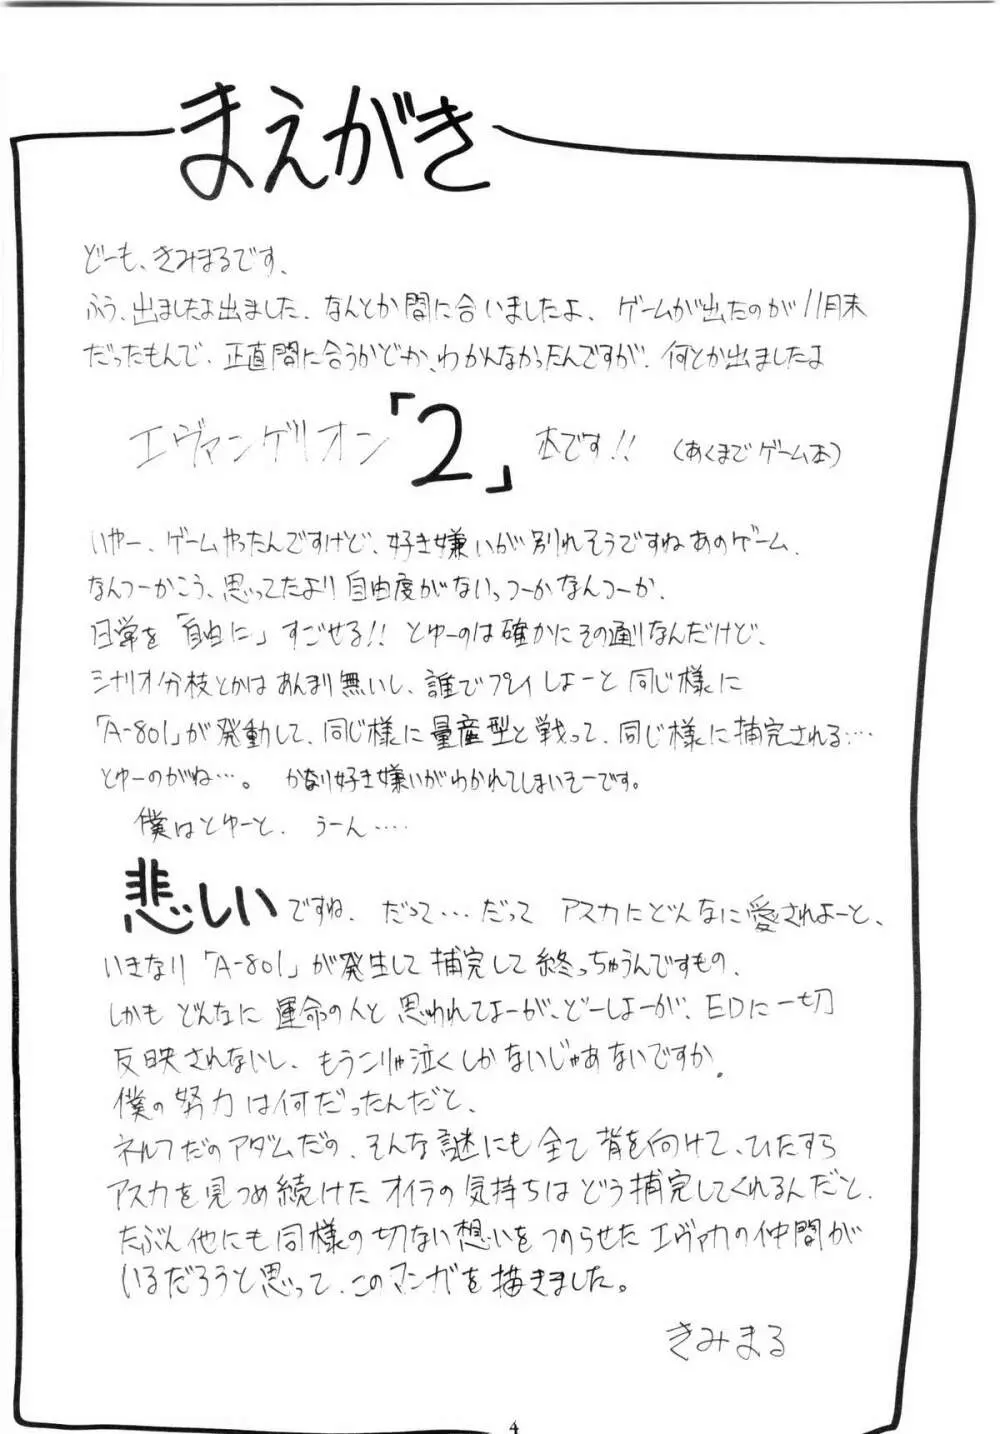 まえがき
どーも、きみまるです、
ふう、出ましたよ出ました、なんとか間に合いましたよ、ゲームが出たのが11月末
だったもんで、正直間に合うかどか、わかんなかったんですが、何とか出ましたよ
エヴァンゲリオン「2」本です!! (あくまでゲーム本)
いやー、ゲームやったんですけど、好き嫌いが別れそうですねあのゲーム、
なんつーかこう、思ってたより自由度がないっつーかなんつーか、
日常を「自由に」すごせる!! とゆーのは確かにその通りなんだけど、
シナリオ分枝とかはあんまり無いし、誰でプレイしよーと同じ様に
「A-801」が発動して、同じ様に量産型と戦って、同じ様に補完される…
とゆーのがね…。 かなり好き嫌いがわかれてしまいそーです。
僕はとゆーと、うーん‥‥
悲しいですね、だって…だってアスカにどんなに愛されよーと、
いきなり「A-801」が発生して補完して終っちゃうんですもの、
しかもどんなに運命の人と思われてよーが、どーしよーが、EDに一切
反映されないし、もうこりゃ泣くしかないじゃあないですか、
僕の努力は何だったんだと、
ネルフだのアダムだの、そんな謎にも全て背を向けて、ひたすら
アスカを見つめ続けたオイラの気持ちはどう補完してくれるんだと、
たぶん他にも同様の切ない想いをつのらせたエヴァカの仲間が
いるだろうと思って、このマンガを描きました。
きみまる
4